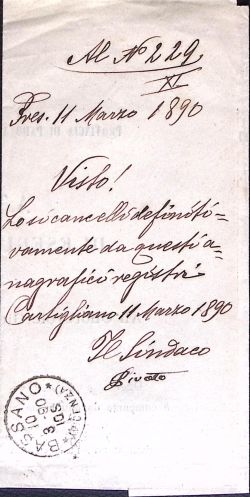 Al N 229
XI
Pres. 11 Marzo 1890
Visto!
Lo si cancelli definiti-
vamente da questi a-
nagrafici registri
Cartigliano 11 Marzo 1890
Il Sindaco
BASSANO (VICENZA)
10
3-90
10 S